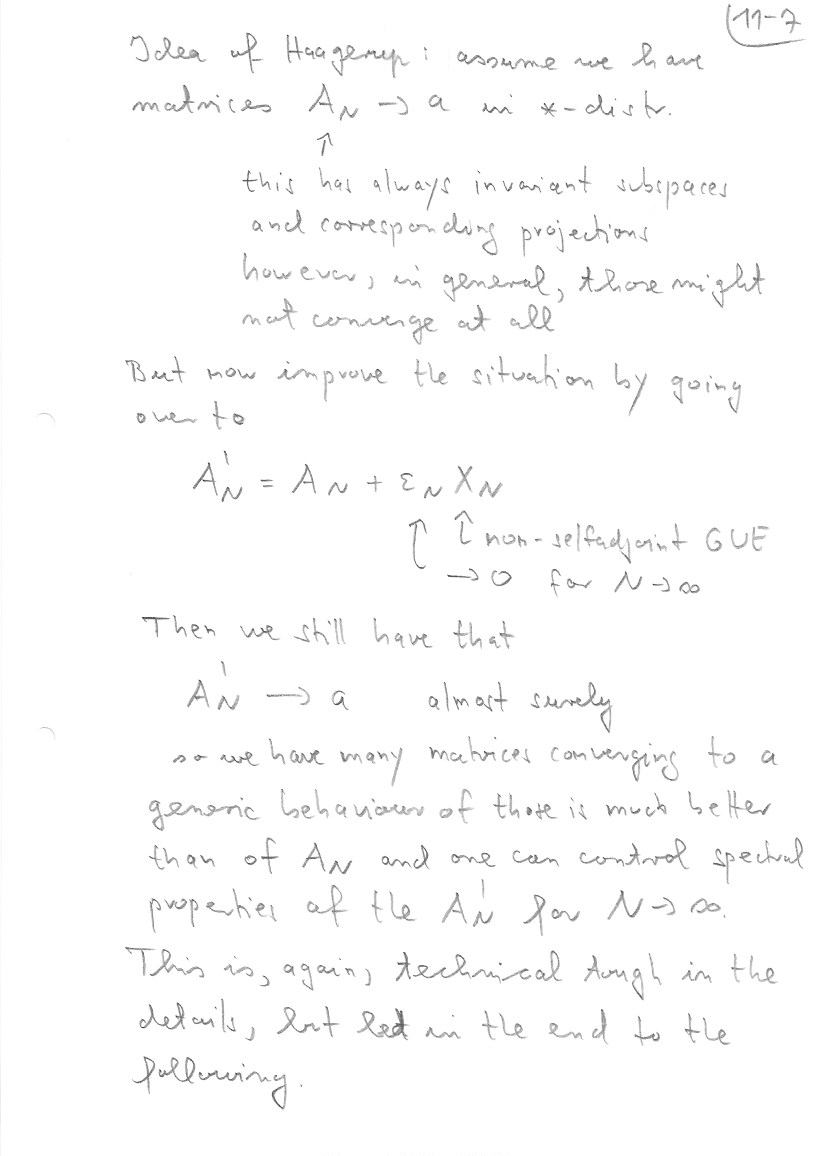 11-7
Idea of Haagerup: assume we have
matrices A_N → a in *-distr.
↑
this has always invariant subspaces
and corresponding projections
however, in general, those might
not converge at all
But now improve the situation by going
over to
A'_N = A_N + ε_N X_N
↑ ↑ non-selfadjoint GUE
→ 0 for N → ∞
Then we still have that
A'_N → a almost surely
so we have many matrices converging to a
generic behaviour of those is much better
than of A_N and one can control spectral
properties of the A'_N for N → ∞.
This is, again, technical tough in the
details, but led in the end to the
following.